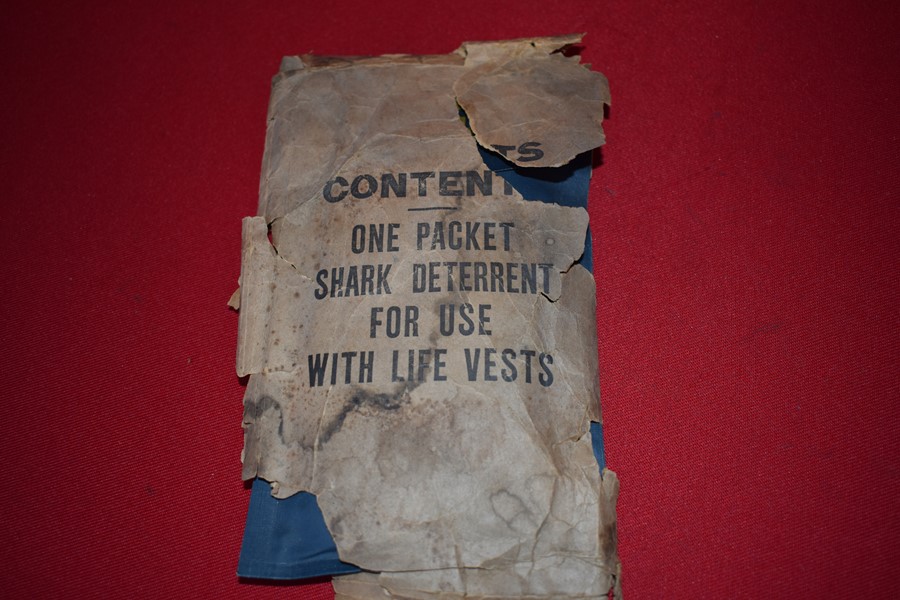 TS
CONTENT
ONE PACKET
SHARK DETERRENT
FOR USE
WITH LIFE VESTS